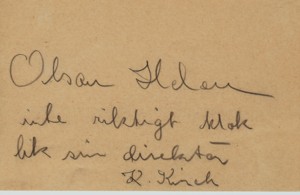 Olsan Helan
inte riktigt klok
lik sin direktör
K. Kinch